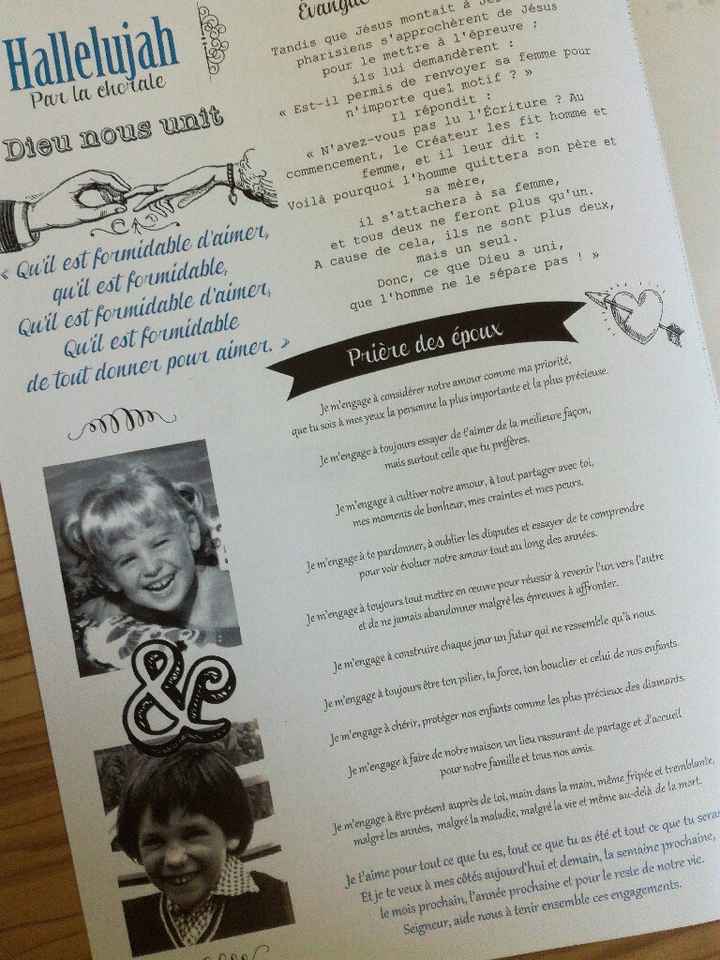 Hallelujah
Par la chorale
Dieu nous unit
« Qu'il est formidable d'aimer,
qu'il est formidable,
Qu'il est formidable d'aimer,
Qu'il est formidable
de tout donner pour aimer. »
&
Évangile
Tandis que Jésus montait à
pharisiens s'approchèrent de Jésus
pour le mettre à l'épreuve :
ils lui demandèrent :
« Est-il permis de renvoyer sa femme pour
n'importe quel motif ? »
Il répondit :
« N'avez-vous pas lu l'Écriture ? Au
commencement, le Créateur les fit homme et
femme, et il leur dit :
Voilà pourquoi l'homme quittera son père et
sa mère,
il s'attachera à sa femme,
et tous deux ne feront plus qu'un.
A cause de cela, ils ne sont plus deux,
mais un seul.
Donc, ce que Dieu a uni,
que l'homme ne le sépare pas ! »
Prière des époux
Je m'engage à considérer notre amour comme ma priorité,
que tu sois à mes yeux la personne la plus importante et la plus précieuse.
Je m'engage à toujours essayer de t'aimer de la meilleure façon,
mais surtout celle que tu préfères.
Je m'engage à cultiver notre amour, à tout partager avec toi,
mes moments de bonheur, mes craintes et mes peurs.
Je m'engage à te pardonner, à oublier les disputes et essayer de te comprendre
pour voir évoluer notre amour tout au long des années.
Je m'engage à toujours tout mettre en œuvre pour réussir à revenir l'un vers l'autre
et de ne jamais abandonner malgré les épreuves à affronter.
Je m'engage à construire chaque jour un futur qui ne ressemble qu'à nous.
Je m'engage à toujours être ton pilier, ta force, ton bouclier et celui de nos enfants.
Je m'engage à chérir, protéger nos enfants comme les plus précieux des diamants.
Je m'engage à faire de notre maison un lieu rassurant de partage et d'accueil
pour notre famille et tous nos amis.
Je m'engage à être présent auprès de toi, main dans la main, même fripée et tremblante,
malgré les années, malgré la maladie, malgré la vie et même au-delà de la mort.
Je t'aime pour tout ce que tu es, tout ce que tu as été et tout ce que tu seras
Et je te veux à mes côtés aujourd'hui et demain, la semaine prochaine,
le mois prochain, l'année prochaine et pour le reste de notre vie.
Seigneur, aide nous à tenir ensemble ces engagements.